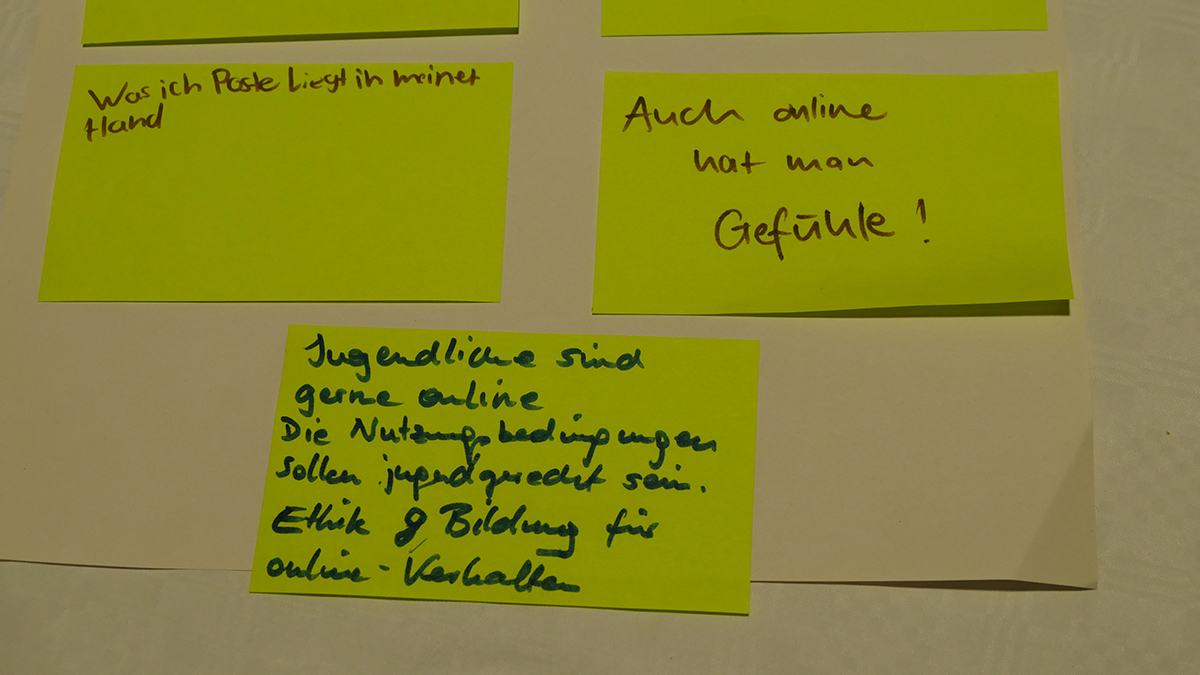 Was ich Poste Liegt in meiner
Hand
Auch online
hat man
Gefühle!
Jugendliche sind
gerne online
Die Nutzungsbedingungen
sollen jugendgerecht sein.
Ethik & Bildung für
online-Verhalten